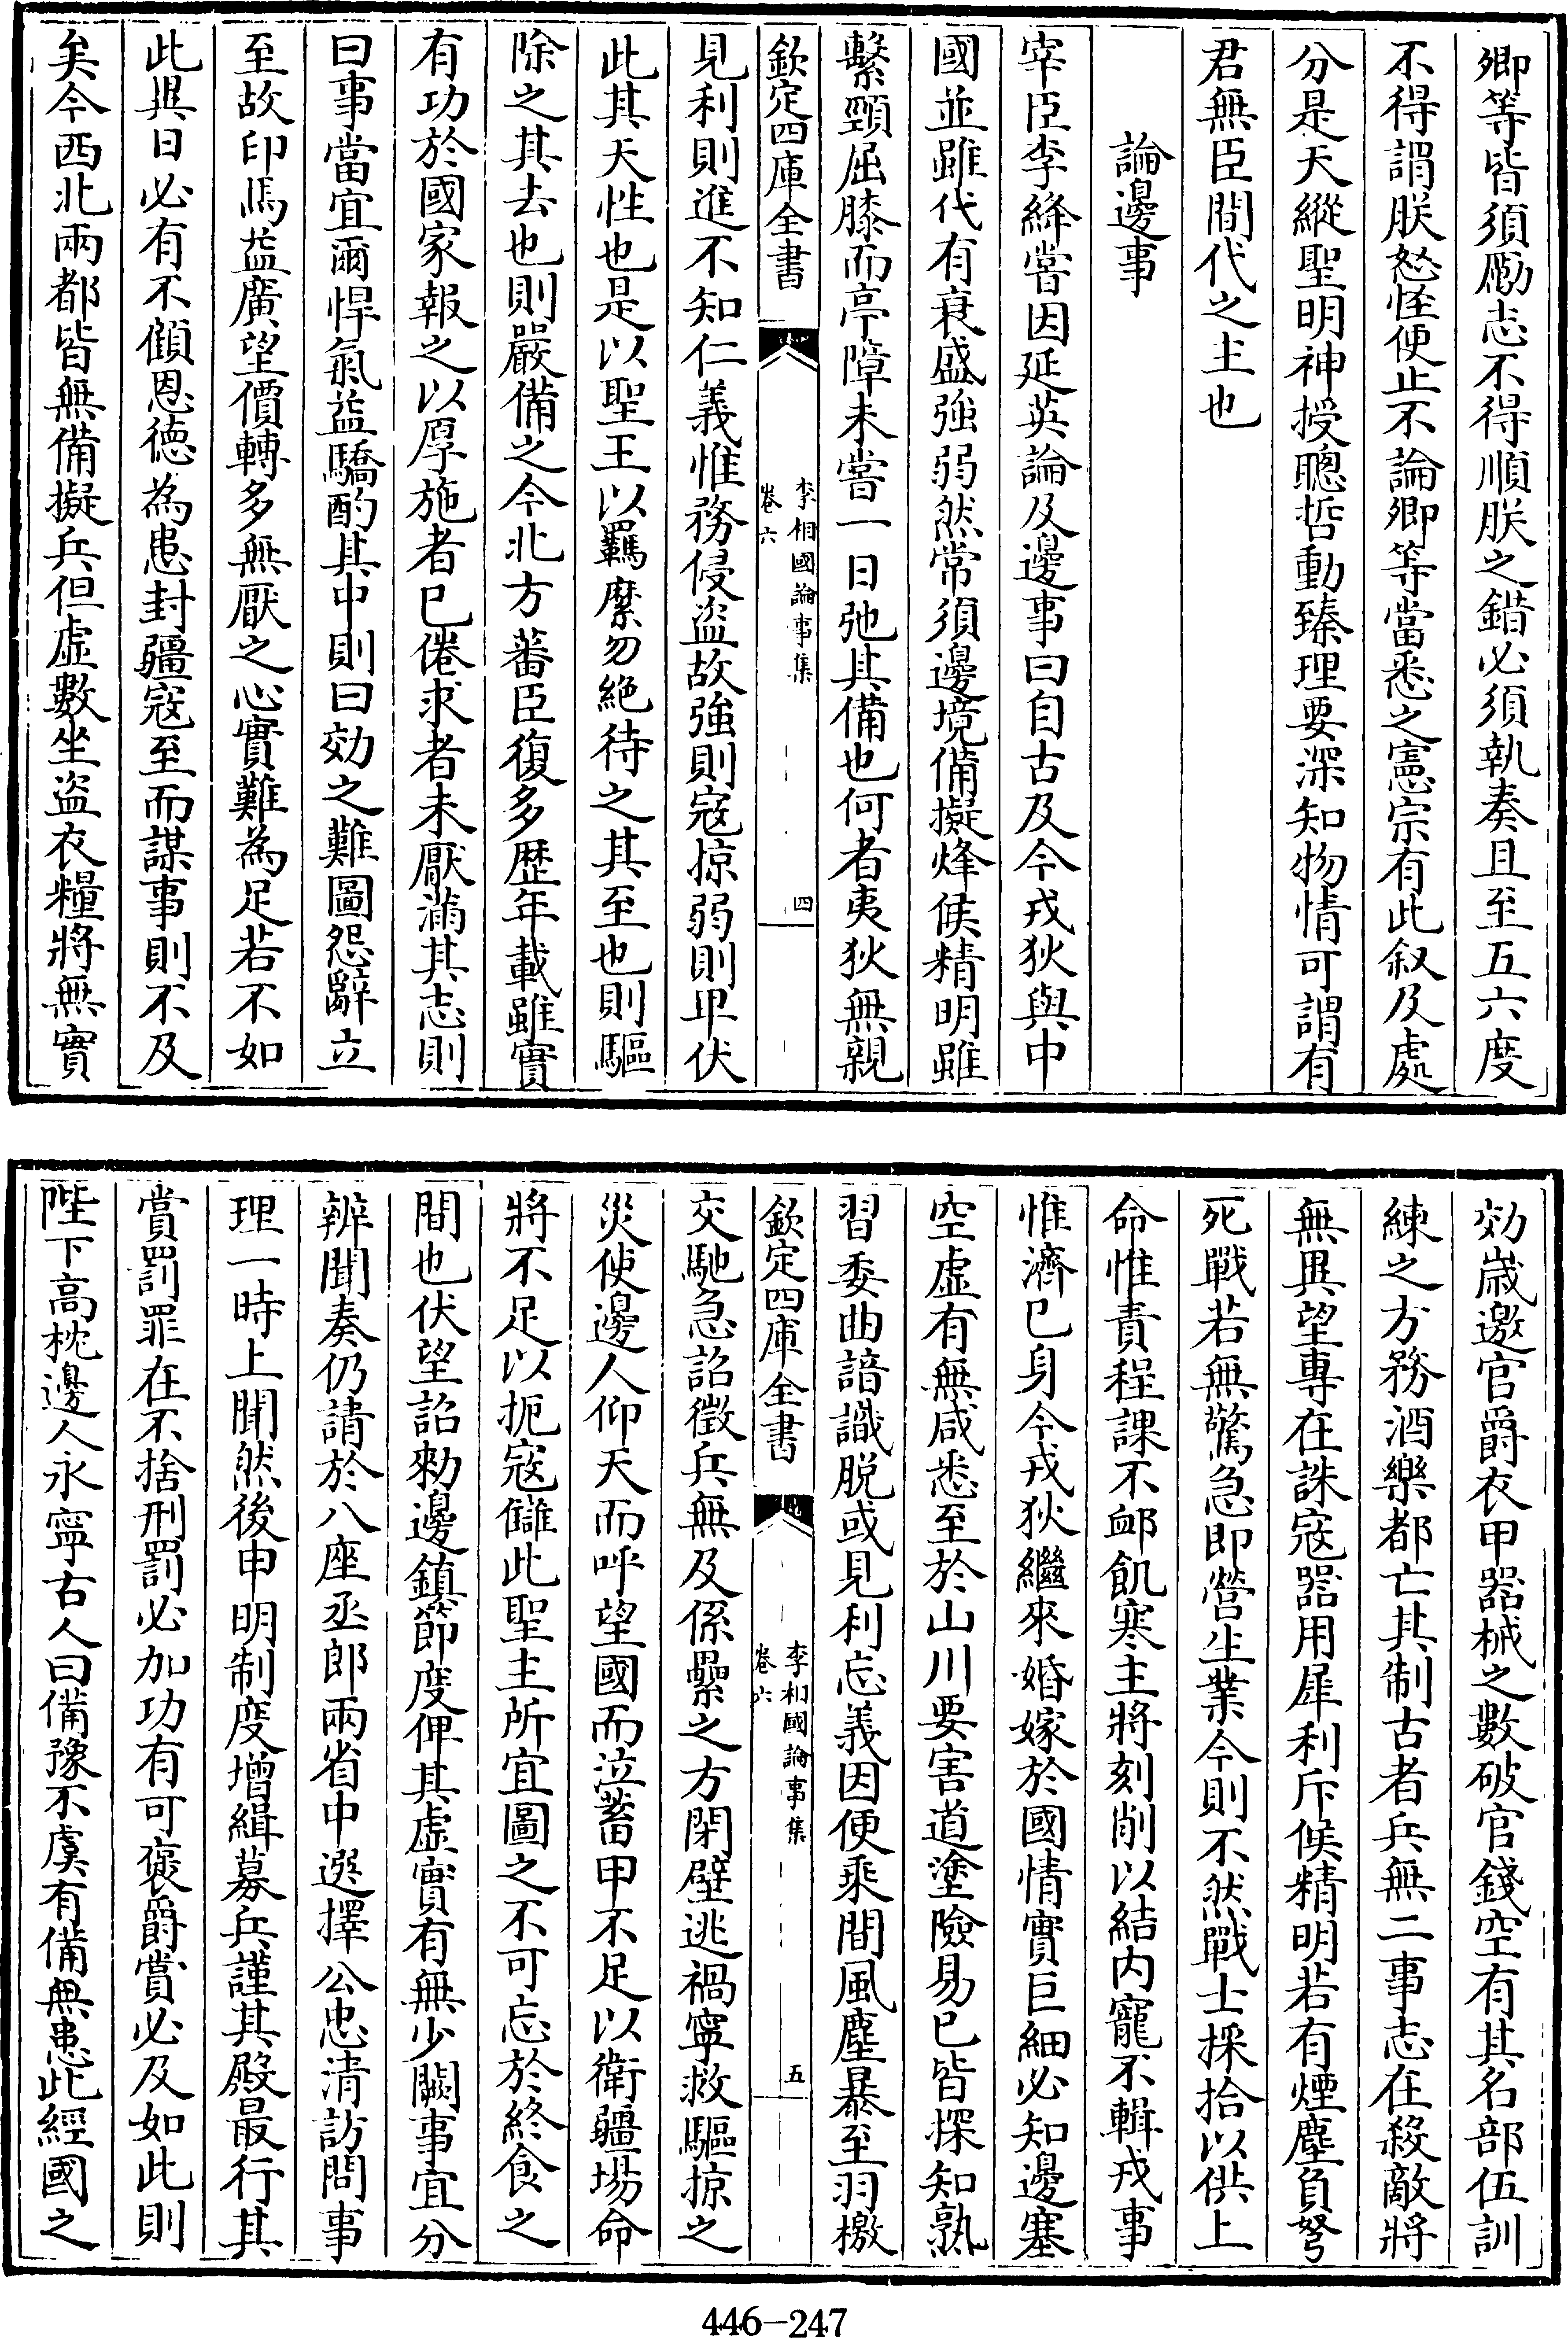 卿等皆須勵志不得順朕之錯必須執奏且至五六度
不得謂朕怒怪便止不論卿等當悉之憲宗有此叙及處
分是天縱聖明神授聰哲動臻理要深知物情可謂有
君無臣間代之主也
論邊事
宰臣李絳嘗因延英論及邊事曰自古及今戎狄與中
國並雖代有衰盛強弱然常須邊境備擬烽候精明雖
繫頸屈膝而亭障未嘗一日弛其備也何者夷狄無親
欽定四庫全書
李相國論事集
卷六
四
見利則進不知仁義惟務侵盜故強則寇掠弱則卑伏
此其天性也是以聖王以羈縻勿絶待之其至也則驅
除之其去也則嚴備之今北方蕃臣復多歴年載雖實
有功於國家報之以厚施者已倦求者未厭滿其志則
曰事當宜爾悍氣益驕酌其中則曰効之難圖怨辭立
至故印馬益廣望價轉多無厭之心實難為足若不如
此異日必有不顧恩徳為患封疆寇至而謀事則不及
矣今西北兩都皆無備擬兵但虛數坐盜衣糧將無實
効歲邀官爵衣甲器械之數破官錢空有其名部伍訓
練之方務酒樂都亡其制古者兵無二事志在殺敵將
無異望專在誅寇器用犀利斥候精明若有煙塵負弩
死戰若無驚急即營生業今則不然戰士採拾以供上
命惟責程課不衂飢寒主將刻削以結内寵不輯戎事
惟濟已身今戎狄繼來婚嫁於國情實巨細必知邊塞
空虛有無咸悉至於山川要害道塗險易已皆探知熟
習委曲諳識脱或見利忘義因便乘間風塵暴至羽檄
欽定四庫全書
李相國論事集
卷六
五
交馳急詔徵兵無及係纍之方閉壁逃禍寧救驅掠之
災使邊人仰天而呼望國而泣蓄甲不足以衛疆場命
將不足以扼寇讎此聖主所宜圖之不可忘於終食之
間也伏望詔勑邊鎮節度俾其虛實有無少闕事宜分
辨聞奏仍請於八座丞郎兩省中選擇公忠清訪問事
理一時上聞然後申明制度增緝募兵謹其殿最行其
賞罰罪在不捨刑罰必加功有可褒爵賞必及如此則
陛下高枕邊人永寧古人曰備豫不虞有備無患此經國之
446-247